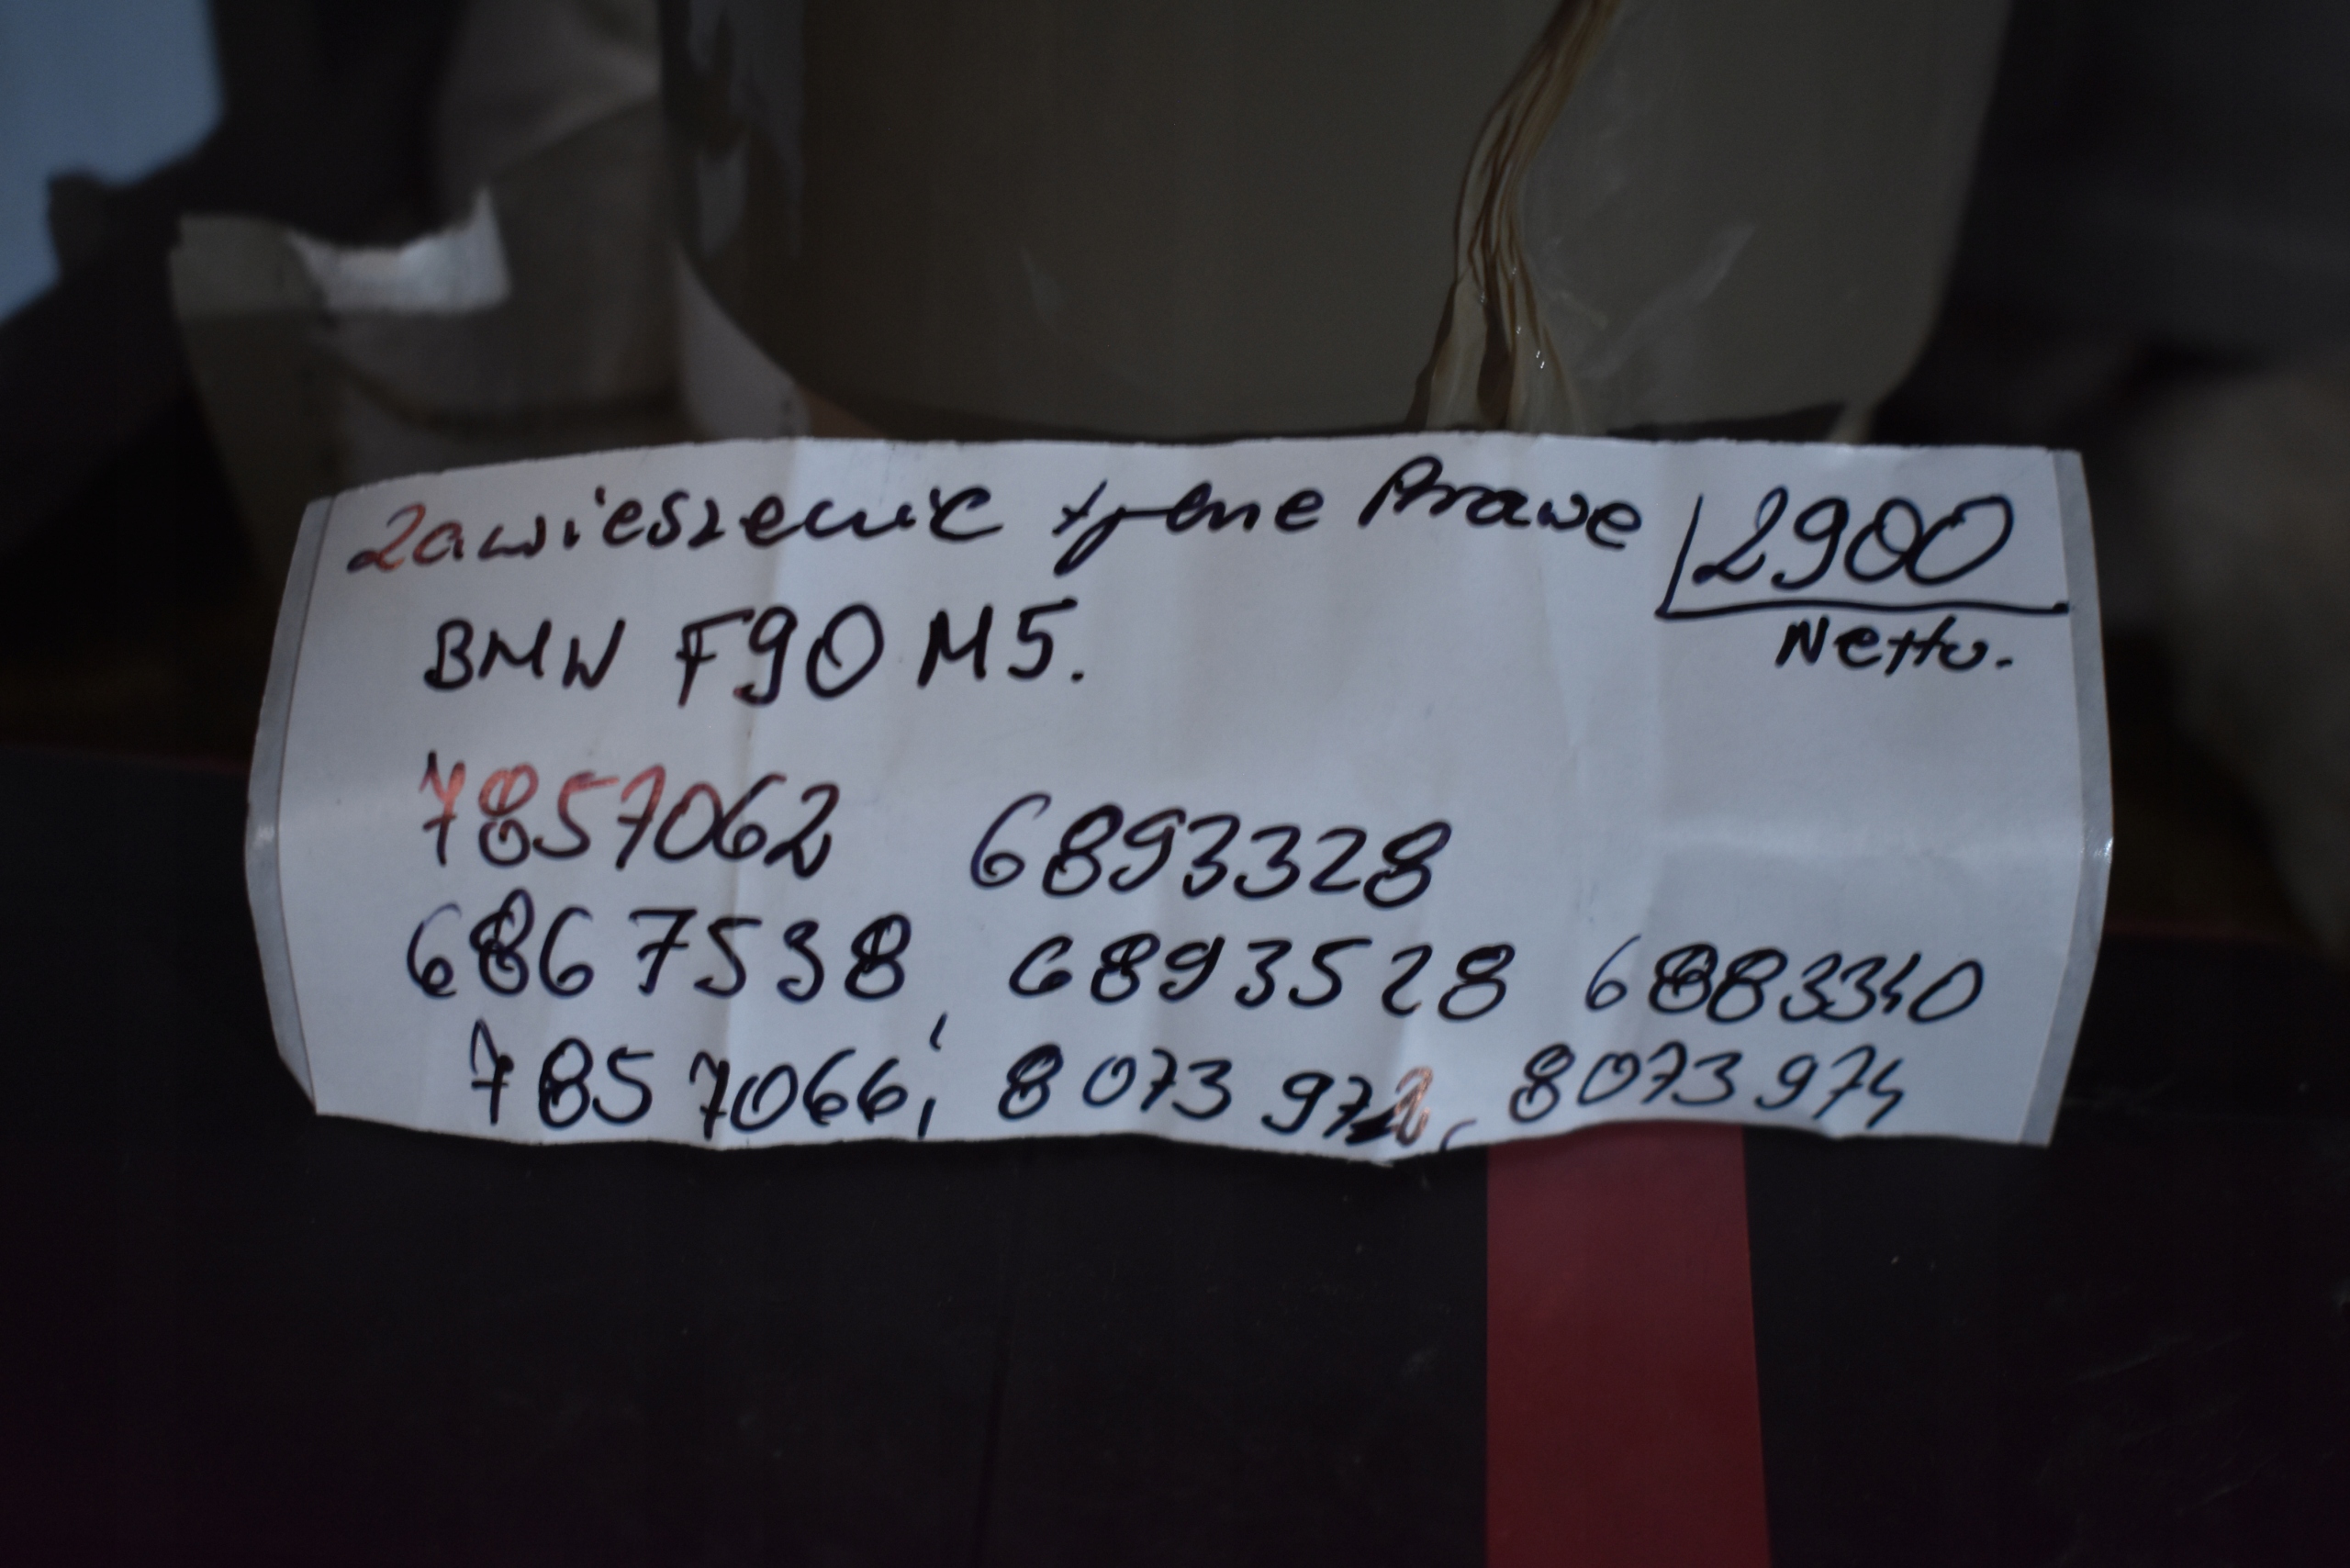 Zawieszenie tylne Prawe 2900
BMW F90 M5. Netto.
7857062 6893328
6867538, 6893528 6883340
7857066, 8073972, 8073974